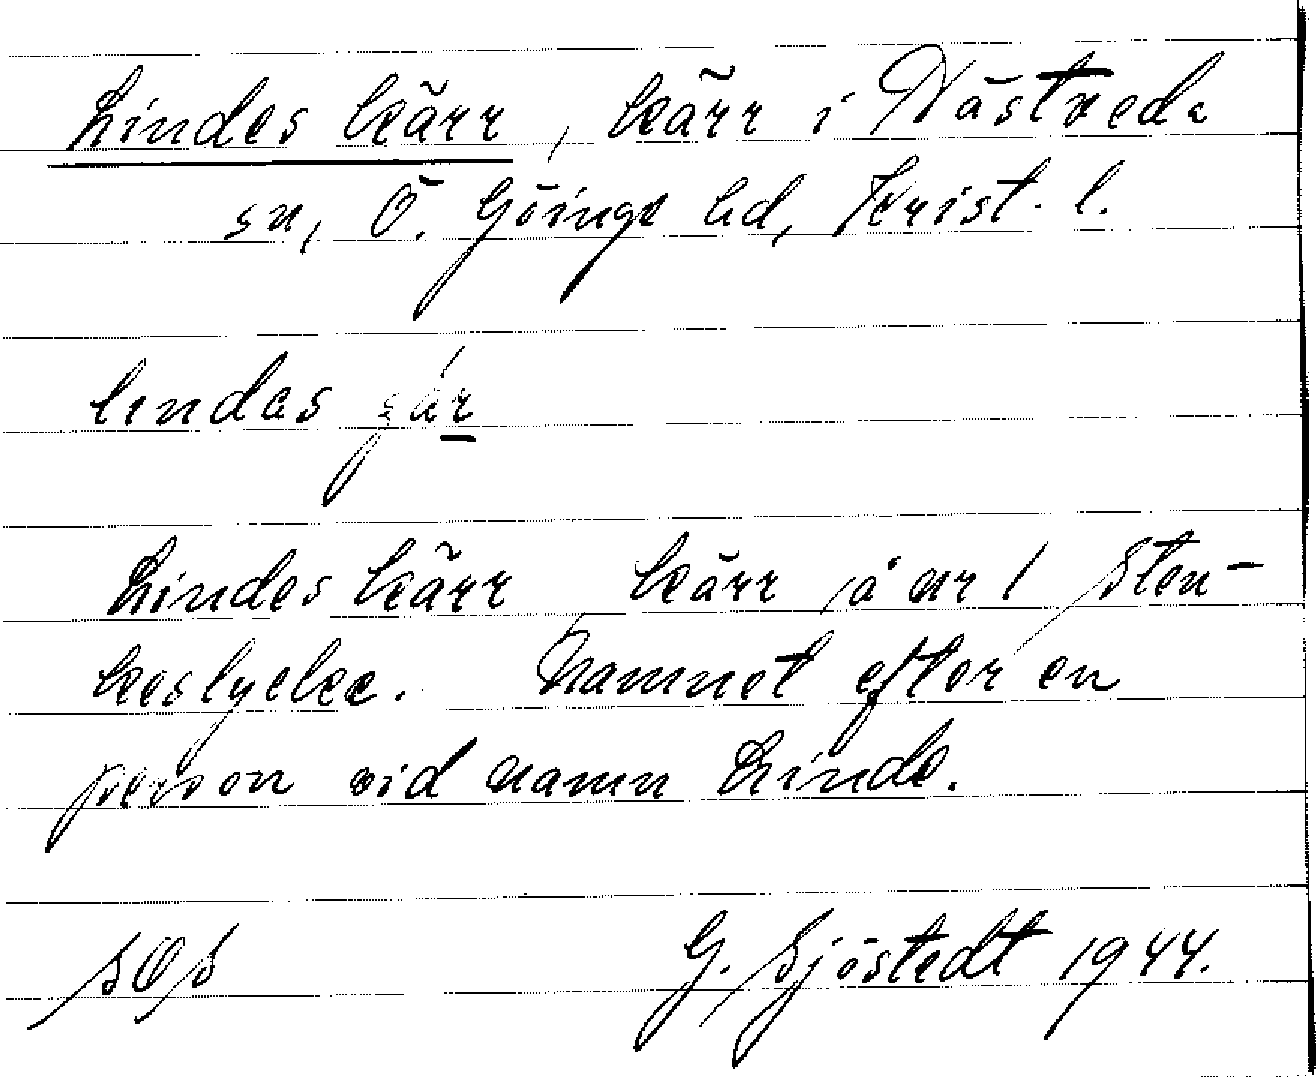 Lindes kärr, kärr i Hästveda
sn, Ö. Göinge hd, Krist. l.
Lindes kärr kärr å nr 1 Sten-
keslycke. Namnet efter en
person vid namn Linde.
SOS G. Sjöstedt 1944.